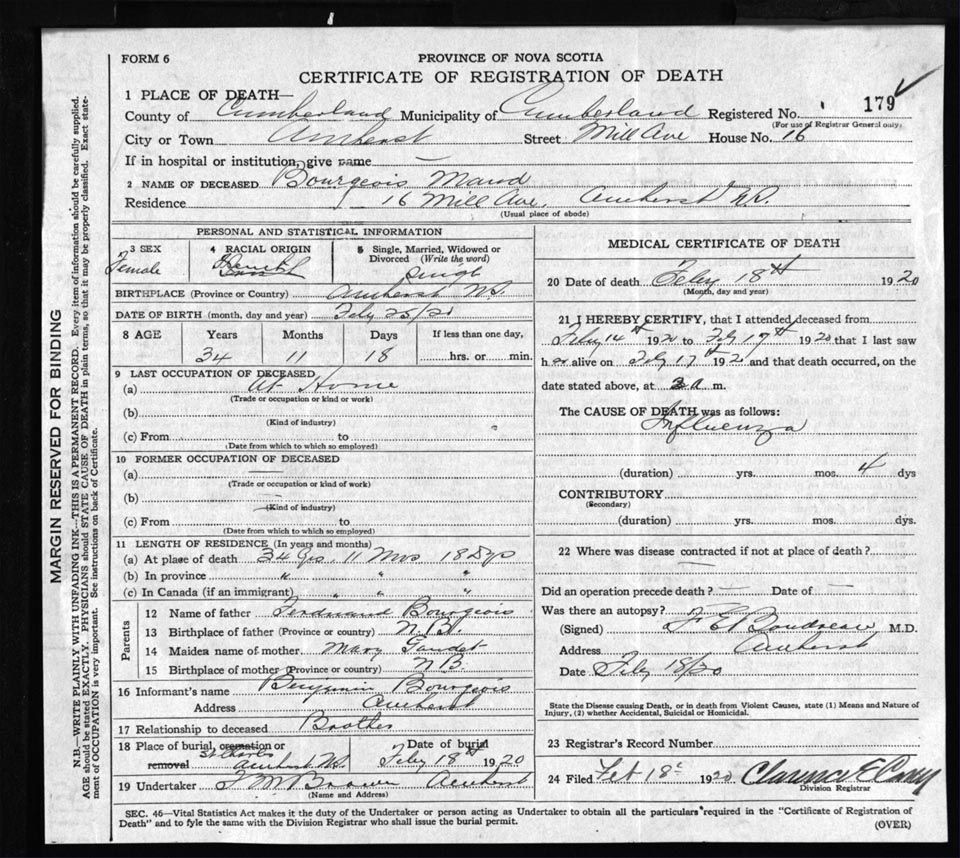 FORM 6
PROVINCE OF NOVA SCOTIA
CERTIFICATE OF REGISTRATION OF DEATH
1 PLACE OF DEATH—
County of Cumberland Municipality of Cumberland Registered No. 179
(For use of Registrar General only)
City or Town Amherst Street Mill Ave House No. 16
If in hospital or institution, give name —
2 NAME OF DECEASED Bourgeois Maud
Residence 16 Mill Ave, Amherst N.S.
(Usual place of abode)
PERSONAL AND STATISTICAL INFORMATION
3 SEX Female
4 RACIAL ORIGIN
5 Single, Married, Widowed or Divorced (Write the word) Single
BIRTHPLACE (Province or Country) Amherst N.S.
DATE OF BIRTH (month, day and year) Feby 25/20
8 AGE Years Months Days If less than one day,
34 11 18 hrs. or min.
9 LAST OCCUPATION OF DECEASED
(a) At Home
(Trade or occupation or kind or work)
(b)
(Kind of industry)
(c) From to
(Date from which to which so employed)
10 FORMER OCCUPATION OF DECEASED
(a) —
(Trade or occupation or kind of work)
(b) —
(Kind of industry)
(c) From to
(Date from which to which so employed)
11 LENGTH OF RESIDENCE (In years and months)
(a) At place of death 34 Yrs, 11 Mos 18 Dys
(b) In province " " "
(c) In Canada (if an immigrant) " " "
Parents
12 Name of father Ferdinand Bourgeois
13 Birthplace of father (Province or country) N.B.
14 Maiden name of mother Mary Gaudet
15 Birthplace of mother (Province or country) N B.
16 Informant's name Benjamin Bourgeois
Address Amherst
17 Relationship to deceased Brother
18 Place of burial, cremation or removal St Charles Amherst N.S. Date of burial Feby 18th 1920
19 Undertaker Amherst
(Name and Address)
MEDICAL CERTIFICATE OF DEATH
20 Date of death Feby 18th 1920
(Month, day and year)
21 I HEREBY CERTIFY, that I attended deceased from
Feby 14th 1920 to Feby 17th 1920 that I last saw
her alive on Feby 17th 1920 and that death occurred, on the
date stated above, at a m.
The CAUSE OF DEATH was as follows:
Influenza
(duration) yrs. mos. 4 dys
CONTRIBUTORY
(Secondary)
(duration) yrs. mos. dys.
22 Where was disease contracted if not at place of death?
—
Did an operation precede death? — Date of —
Was there an autopsy?
(Signed) F E Boudreau, M.D.
Address Amherst
Date Feby 18/20
State the Disease causing Death, or in death from Violent Causes, state (1) Means and Nature of
Injury, (2) whether Accidental, Suicidal or Homicidal.
23 Registrar's Record Number
24 Filed Feb 18 1920 Clarence E Casey
Division Registrar
SEC. 46—Vital Statistics Act makes it the duty of the Undertaker or person acting as Undertaker to obtain all the particulars required in the "Certificate of Registration of
Death" and to fyle the same with the Division Registrar who shall issue the burial permit.
(OVER)
MARGIN RESERVED FOR BINDING
N.B.—WRITE PLAINLY WITH UNFADING INK—THIS IS A PERMANENT RECORD. Every item of information should be carefully supplied.
AGE should be stated EXACTLY. PHYSICIANS should STATE CAUSE OF DEATH in plain terms, so that it may be properly classified. Exact state-
ment of OCCUPATION is very important. See instructions on back of Certificate.